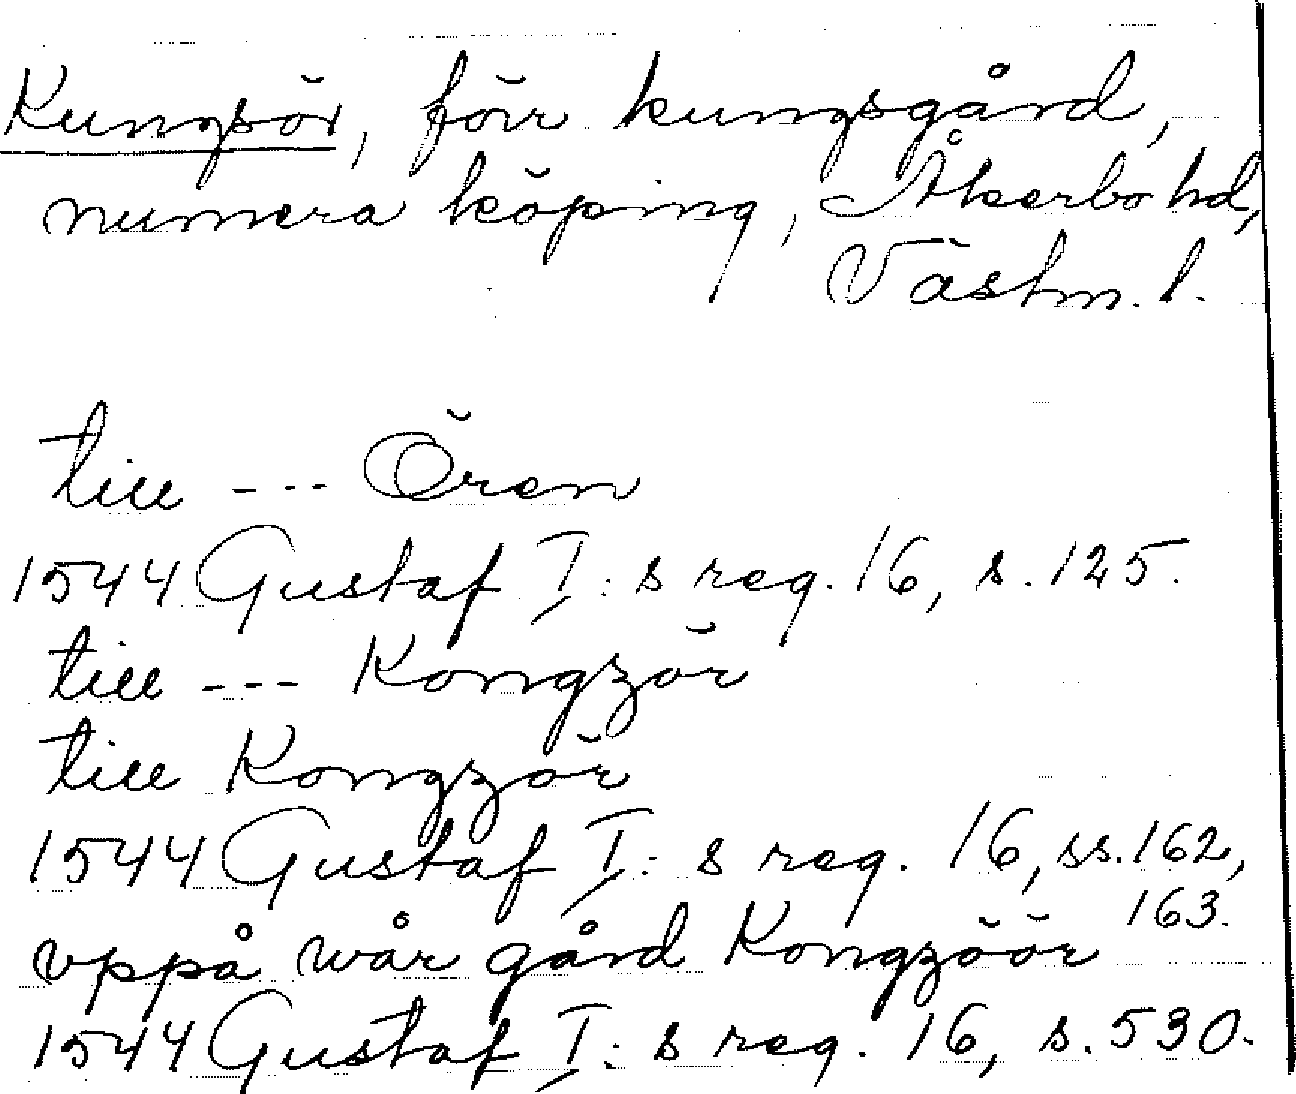 Kungsör, förr kungsgård,
numera köping, Åkerbo hd,
Västm. l.
till --- Ören
1544 Gustaf I: s reg. 16, s. 125.
till --- Kongzör
till Kongzör
1544 Gustaf I: s reg. 16, ss. 162,
163.
vppå wår gård Kongzöör
1544 Gustaf I: s reg. 16, s. 530.